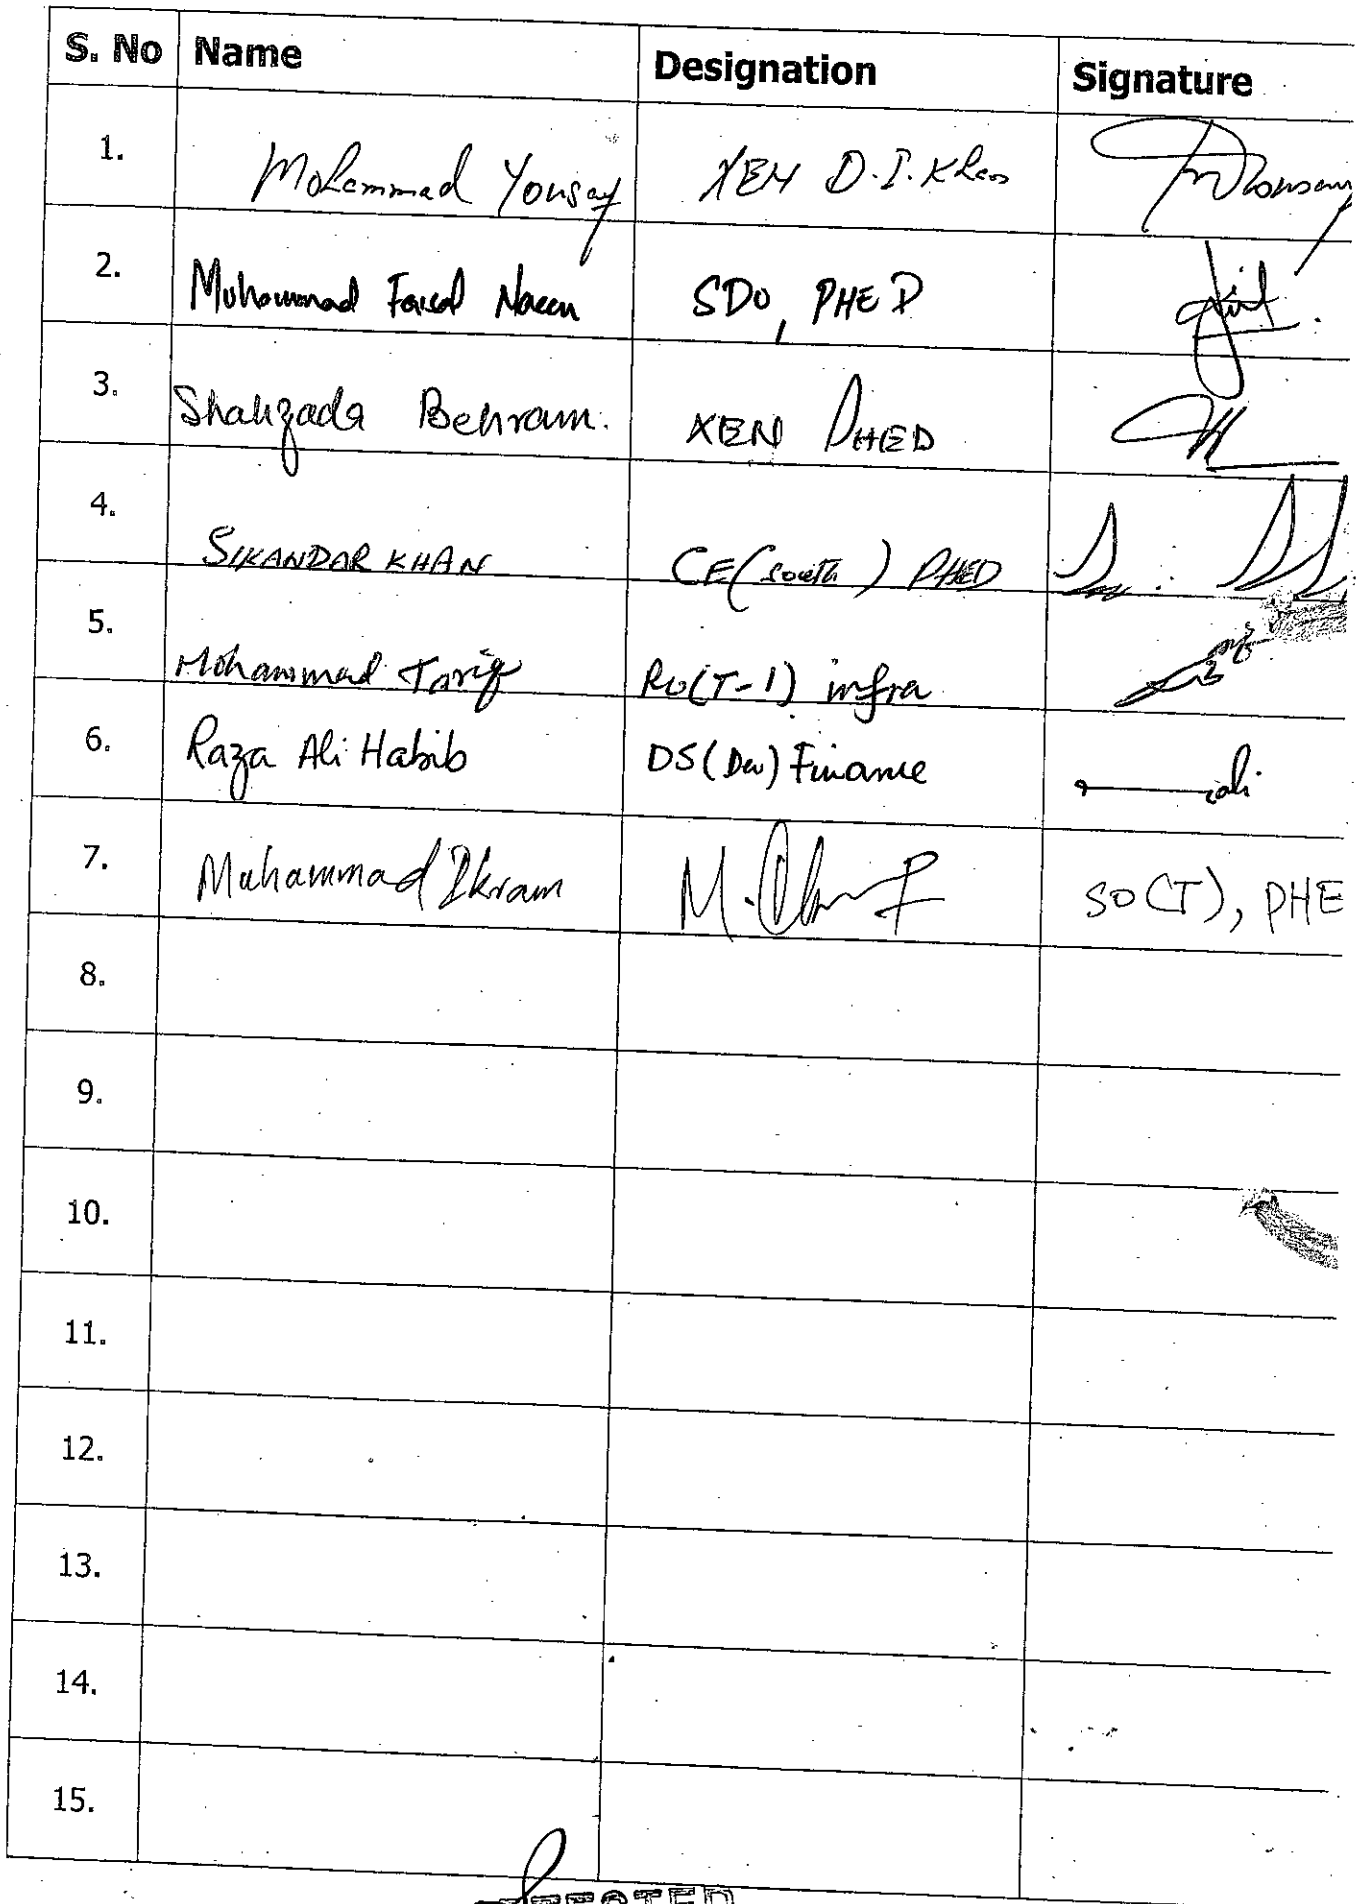 S. No Name Designation Signature
1. Mohammad Yousaf XEN D.I. Khan
2. Muhammad Faisal Naeem SDO, PHED
3. Shahzada Behram. XEN PHED
4. SIKANDAR KHAN CE (South) PHED
5. Mohammad Tariq RO(T-1) infra
6. Raza Ali Habib DS (Dev) Finance
7. Muhammad Ikram SO (T), PHE
8.
9.
10.
11.
12.
13.
14.
15.
ATTESTED